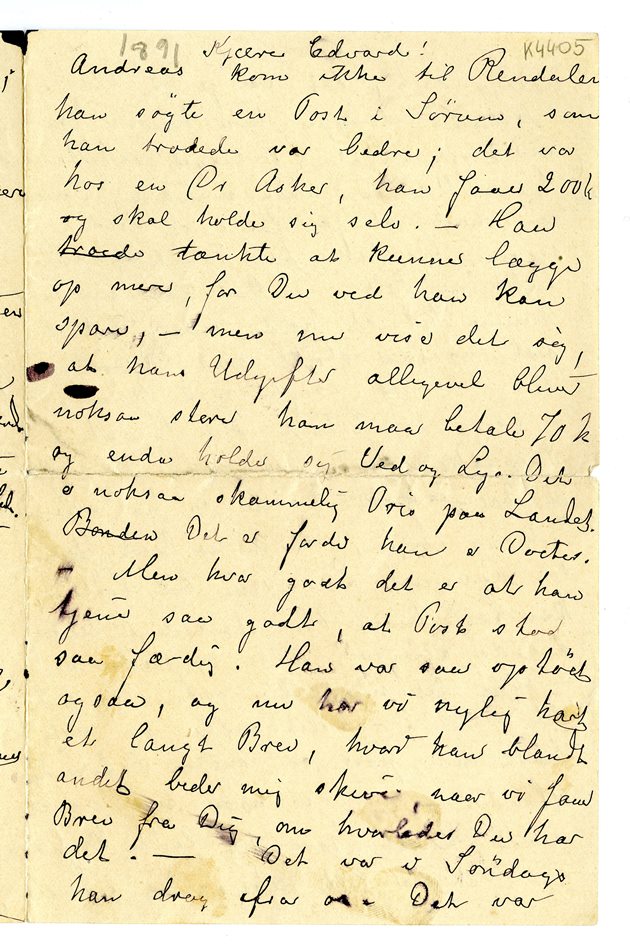 1891
K4405
Kjære Edvard!
Andreas kom ikke til Rendalen
han søgte en Post i Sørum, som
han troede var bedre; det var
hos en Dr Asker, han faaer 200 k
og skal holde sig selv. — Han
troede tænkte at kunne lægge
op mere, for Du ved han kan
spare, — men nu viser det sig,
at hans Udgifter alligevel bliver
noksaa store han maa betale 70 k
og enda holde sig Ved og Lys. Det
e noksaa skammelig Pris paa Landet.
Bonden Det e fordi han e Doctor.
— Men hvor godt det er at han
tjener saa godt, at Post stod
saa færdig. Han var saa
ogsaa, og nu har vi nylig havt
et langt Brev, hvori han blandt
andet beder mig skrive, naar vi faar
Brev fra Dig, om hvorledes Du har
det. — Det var i Søndags
han drog ifra os. Det var